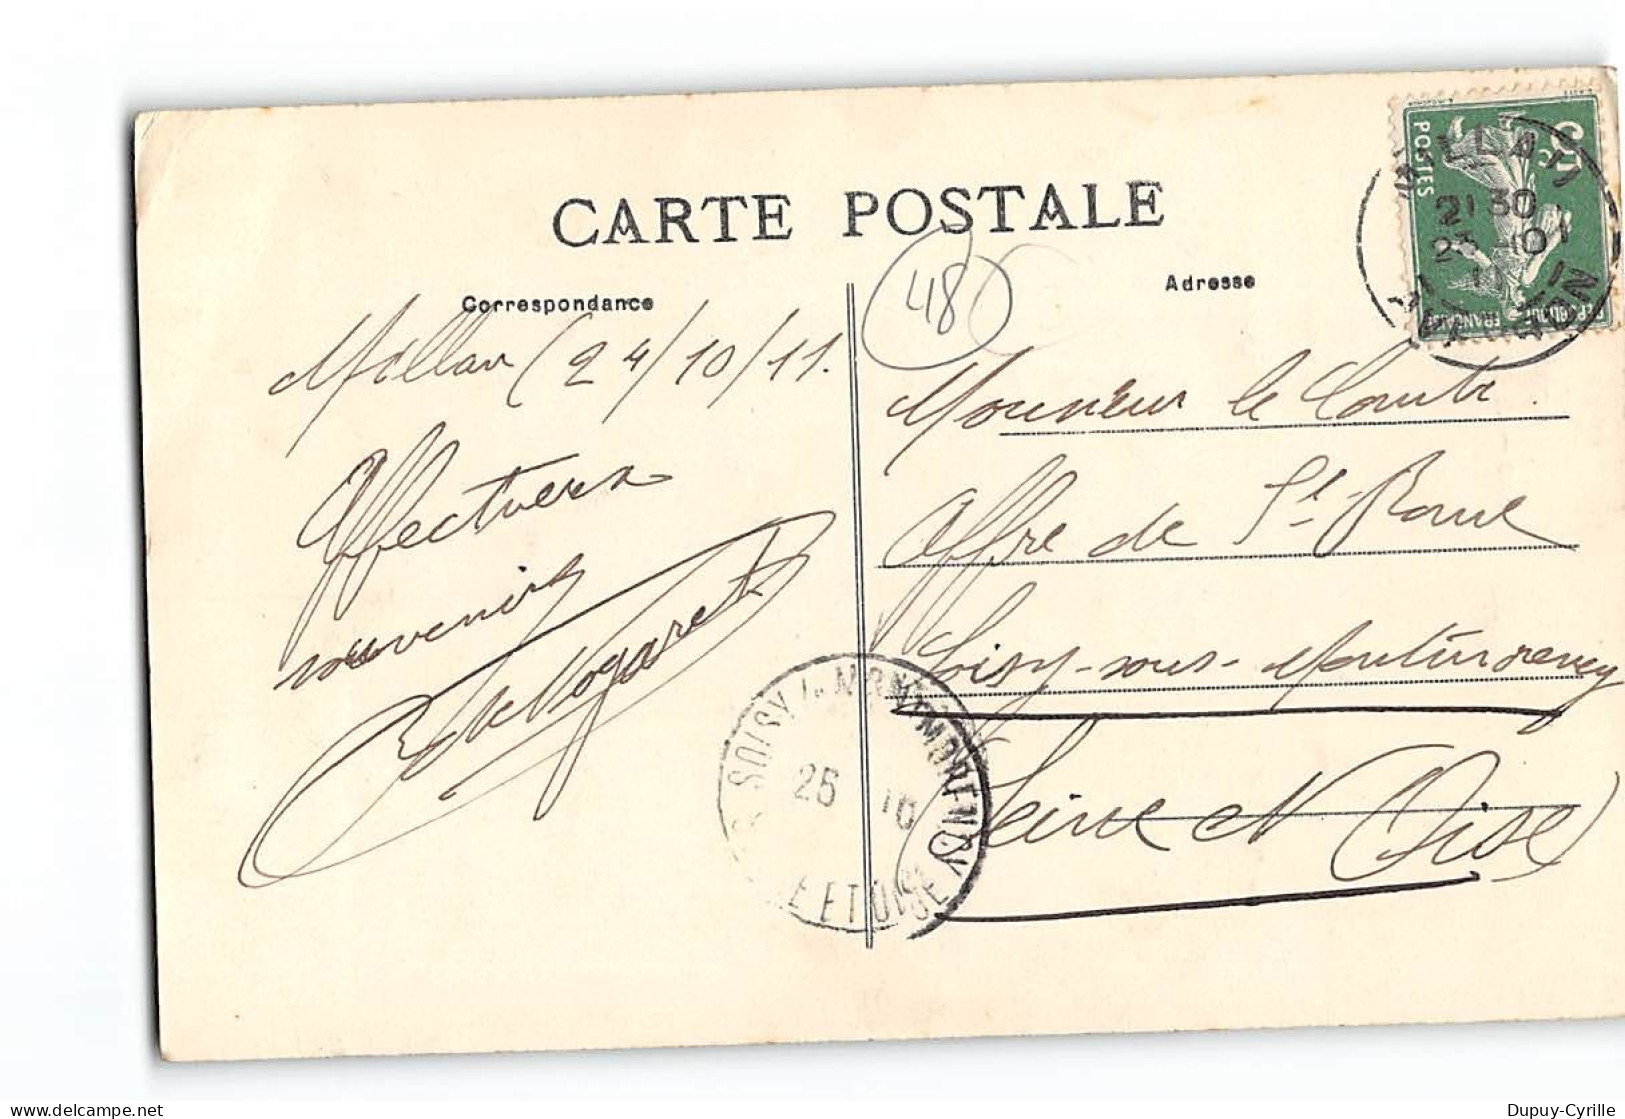 CARTE POSTALE
Correspondance
Adresse
48
Millau (24/10/11.
Affectueux
souvenirs
de Nogaret
Monsieur le Comte
Affre de St-Rome
Soisy-sous-Montmorency
Seine et Oise
POSTES
REPUBLIQUE
FRANÇAISE
MILLAU
21 30
25 -10
11
AVEYRON
SOISY-s-MONTMORENCY
25 10
ET OISE
Dupuy-Cyrille